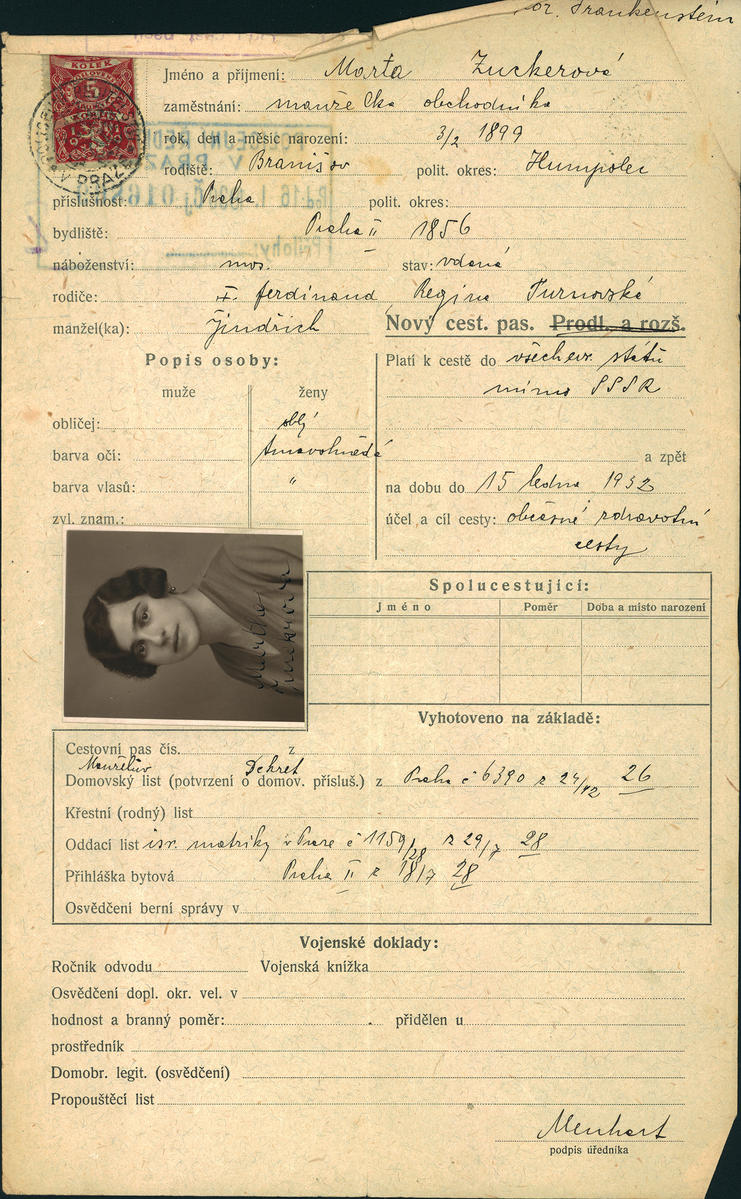 Frankenstein
KOLEK
Jméno a příjmení: Marta Zuckerová
zaměstnání: manželka obchodníka
rok, den a měsíc narození: 3/2 1899
rodiště: Branišov polit. okres: Humpolec
příslušnost: Praha polit. okres:
bydliště: Praha II 1856
náboženství: mos. stav: vdaná
rodiče: Ferdinand Regina Turnovská
manžel(ka): Jindřich
Nový cest. pas. Prodl. a rozš.
Popis osoby:
Platí k cestě do všech evr. států
muže ženy
mimo SSSR
obličej: oblý
barva očí: tmavohnědé
a zpět
barva vlasů: "
na dobu do 15 ledna 1932
zvl. znam.:
účel a cíl cesty: občasné zdravotní
cesty
Spolucestující:
Jméno Poměr Doba a místo narození
Vyhotoveno na základě:
Cestovní pas čís. z
Manželův Dekret
Domovský list (potvrzení o domov. přísluš.) z Praha č 6390 z 24/12 26
Křestní (rodný) list
Oddací list isr. matriky v Praze č 1159/28 z 29/7 28
Přihláška bytová Praha II z 18/7 28
Osvědčení berní správy v
Vojenské doklady:
Ročník odvodu Vojenská knížka
Osvědčení dopl. okr. vel. v
hodnost a branný poměr: přidělen u
prostředník
Domobr. legit. (osvědčení)
Propouštěcí list
Menhart
podpis úředníka